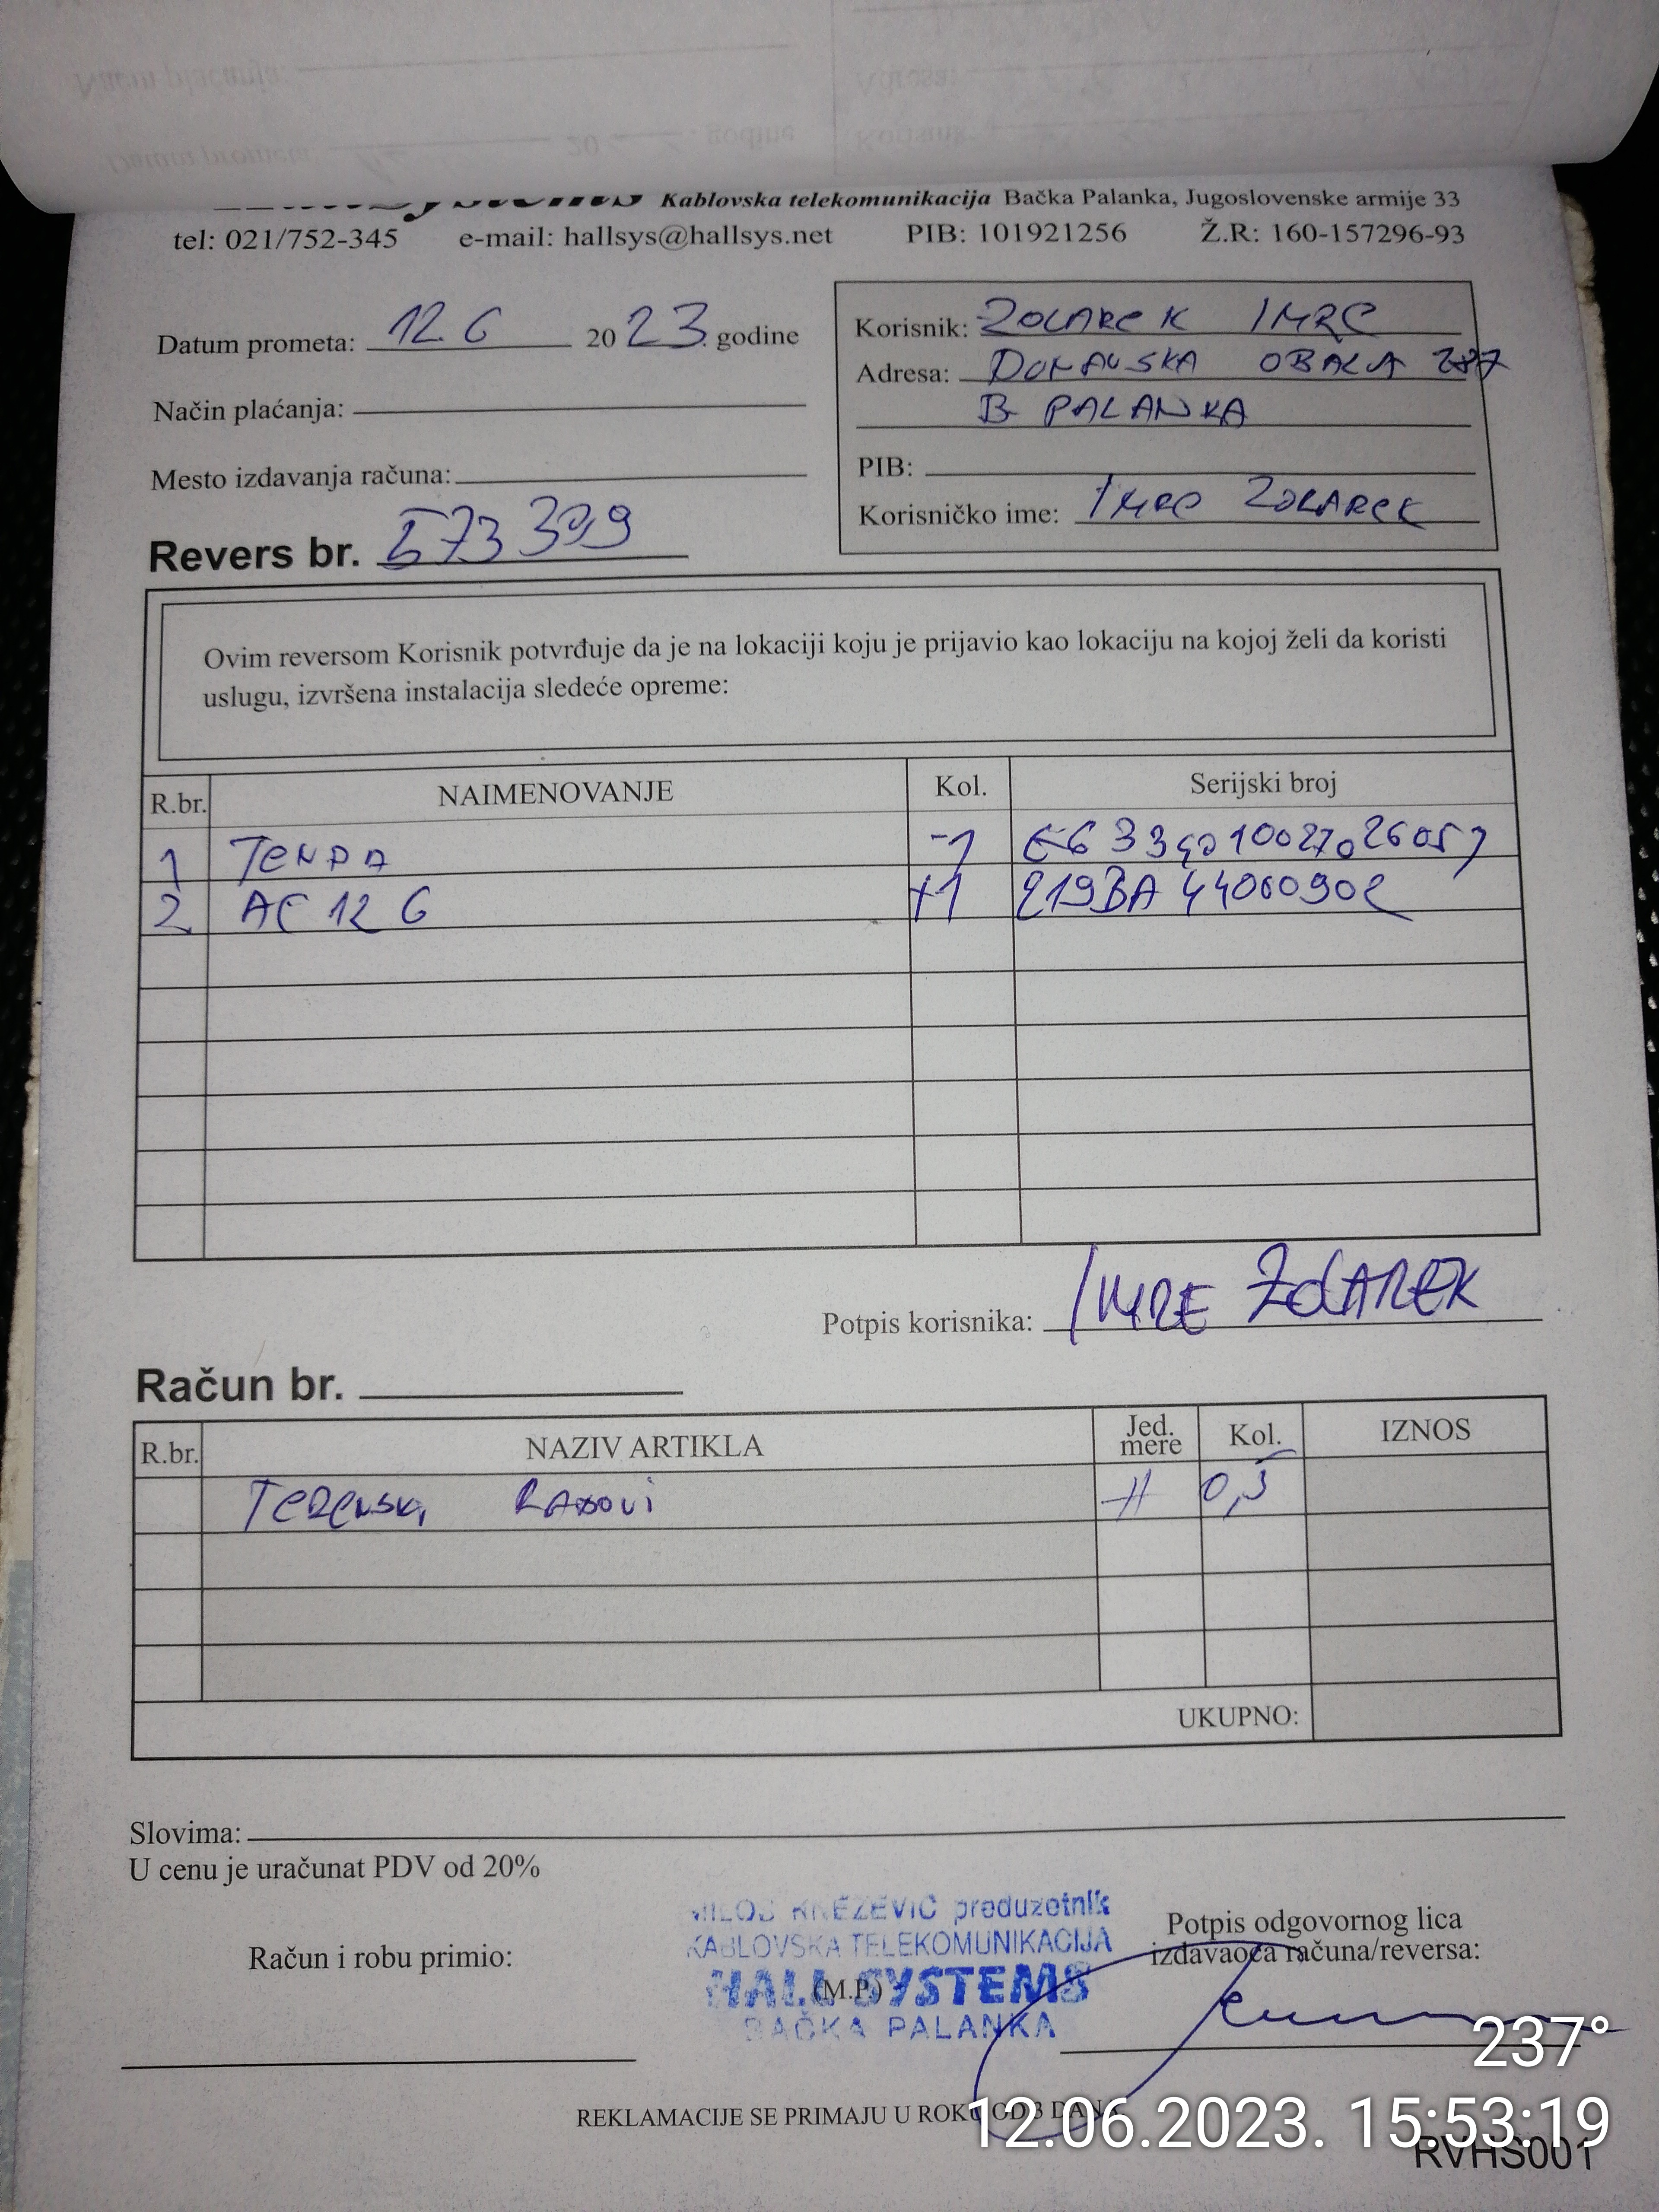 Kablovska telekomunikacija Bačka Palanka, Jugoslovenske armije 33
tel: 021/752-345 e-mail: hallsys@hallsys.net PIB: 101921256 Ž.R: 160-157296-93
Datum prometa: 12. 6 2023. godine
Način plaćanja:
Mesto izdavanja računa:
Revers br. 573399
Korisnik: ZOLAREK IMRE
Adresa: DUNAVSKA OBALA
B PALANKA
PIB:
Korisničko ime: IMRE ZOLAREK
Ovim reversom Korisnik potvrđuje da je na lokaciji koju je prijavio kao lokaciju na kojoj želi da koristi
uslugu, izvršena instalacija sledeće opreme:
R.br. NAIMENOVANJE Kol. Serijski broj
1 TENDA -1
2 AC 12 G +1 219BA44000902
Potpis korisnika: IMRE ZOLAREK
Račun br.
R.br. NAZIV ARTIKLA Jed. mere Kol. IZNOS
TERENSKI RADOVI H 0,5
UKUPNO:
Slovima:
U cenu je uračunat PDV od 20%
MILOŠ KNEŽEVIĆ preduzetnik
KABLOVSKA TELEKOMUNIKACIJA
HALL SYSTEMS
BAČKA PALANKA
(M.P.)
Račun i robu primio:
Potpis odgovornog lica
izdavaoca računa/reversa:
REKLAMACIJE SE PRIMAJU U ROKU OD 3 DANA
237°
12.06.2023. 15:53:19
RVHS001